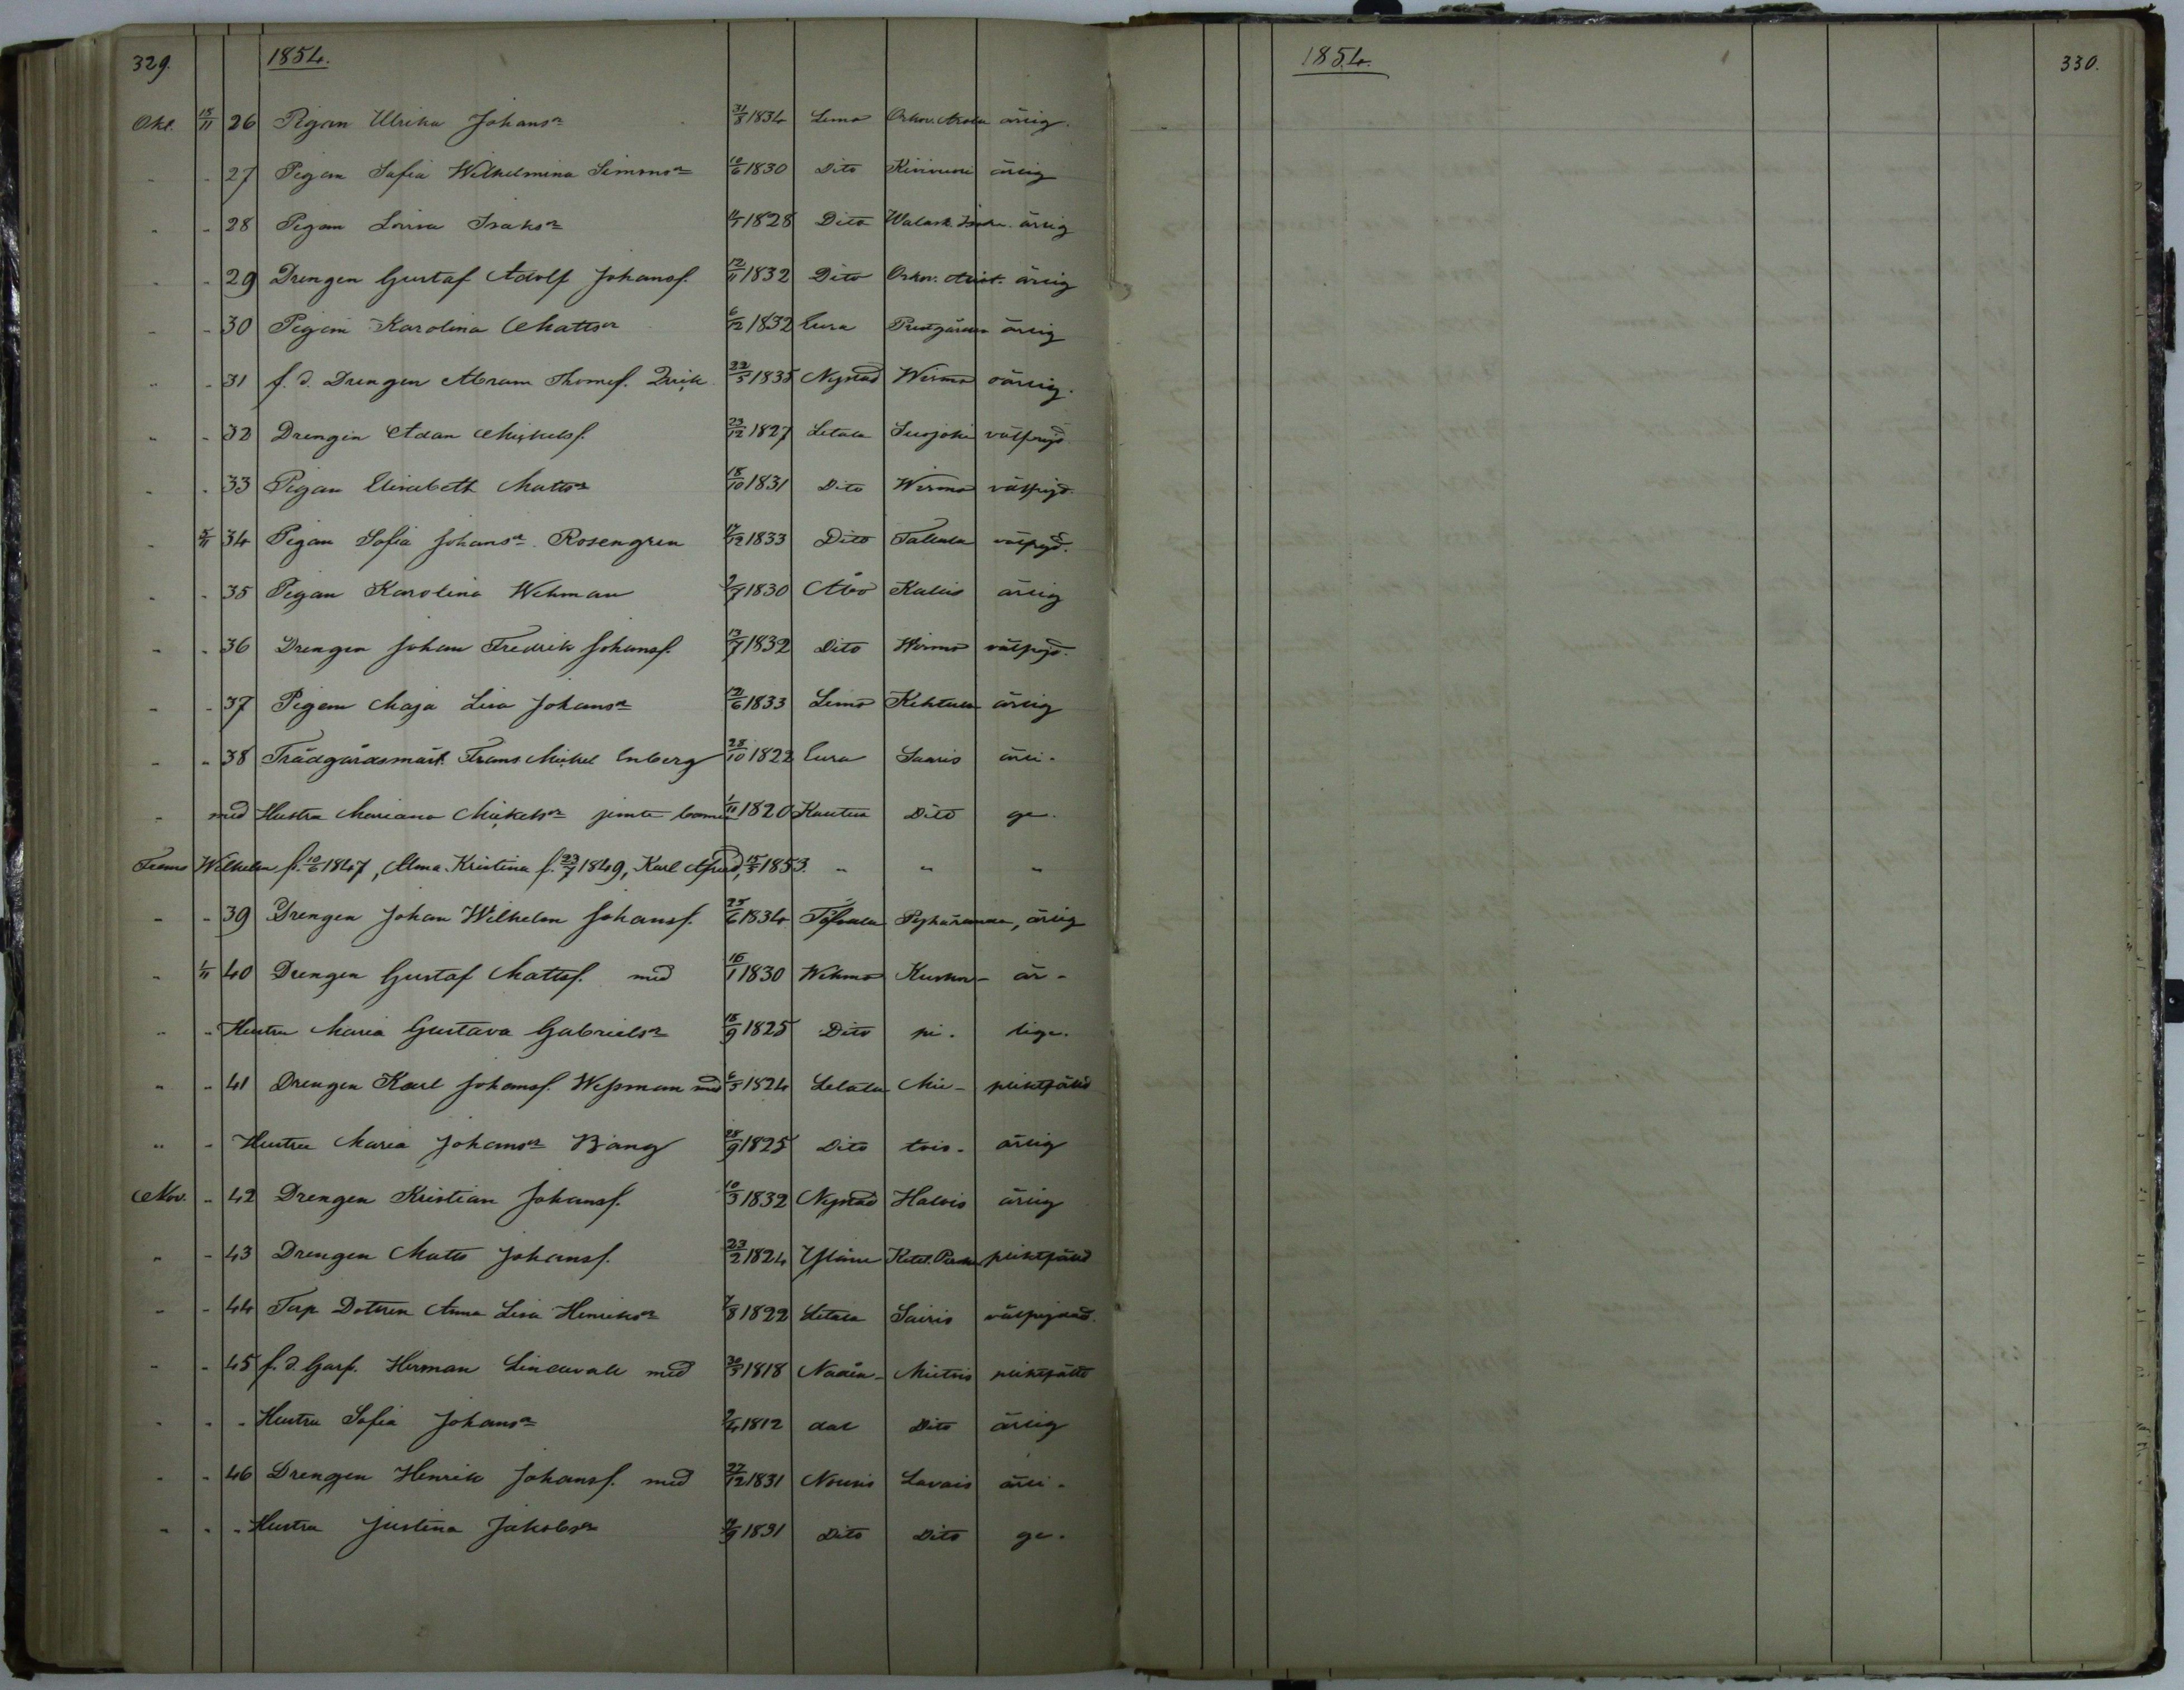 329. 1854.
Okt. 15/11 26 Pigan Ulrika Johansn 31/8 1834 Lemo Orkov. ärlig.
" " 27 Pigan Sofia Wilhelmina Simonsn 10/6 1830 Dito ärlig
" " 28 Pigan Lovisa Isaksn 1828 Dito Walask. ärlig
" " 29 Drengen Gustaf Adolf Johansf. 12/11 1832 Dito Orkov. ärlig
" " 30 Pigan Karolina Mattsn 6/12 1832 Eura Prestgården ärlig
" " 31 f. d. Drengen Abram Thomef. Qvick 22/5 1835 Nystad Wirmo oärlig.
" " 32 Drengen Adam Mickelsf. 23/12 1827 Letala Suojoki välfrejd
" " 33 Pigan Elisabeth Mattsn 18/10 1831 Dito Wirmo välfrejd.
" 5/11 34 Pigan Sofia Johansn Rosengren 17/12 1833 Dito Tallala välfrejd.
" " 35 Pigan Karolina Wehman 2/7 1830 Åbo Kallis ärlig
" " 36 Drengen Johan Fredrik Johansf. 13/7 1832 Dito Wirmo välfrejd.
" " 37 Pigan Maja Lisa Johansn 12/6 1833 Lemo ärlig
" " 38 Trädgårdsmäst. Frans Mickel Enberg 28/10 1822 Eura Saaris ärli-
" med Hustra Mariana Mickelsn jemte barnen 1/11 1820 Kautua Dito ge.
Frans Wilhelm f. 10/6 1847, Alma Kristina f. 23/7 1849, Karl Alfred, 15/5 1853. " " "
" " 39 Drengen Johan Wilhelm Johansf. 25/6 1834 Töfsala ärlig
" 1/11 40 Drengen Gustaf Mattsf. med 16/1 1830 Wehmo är-
" " Hustru Maria Gustava Gabrielsn 15/9 1825 Dito pi. liga.
" " 41 Drengen Karl Johansf. Wessman med 6/5 1824 Letala Mie- pliktfälld
" " Hustru Maria Johansn Bäng 28/9 1825 Dito tois. ärlig
Nov. " 42 Drengen Kristian Johansf. 10/3 1832 Nystad Halvis ärlig
" " 43 Drengen Matts Johansf. 23/2 1824 Yläne pliktfälld
" " 44 Torp. Dottren Anna Lisa Henriksn 7/8 1822 Letala Sairis välfrejdad.
" " 45 f. d. Garf. Herman Lindevall med 30/3 1818 Nåden- Mietois pliktfälld
" " " Hustru Sofia Johansn 2/4 1812 dal Dito ärlig
" " 46 Drengen Henrik Johansf. med 22/12 1831 Nousis Lavais ärli-
" " " Hustru Justina Jakobsn 1831 Dito Dito ge.
1854. 330.